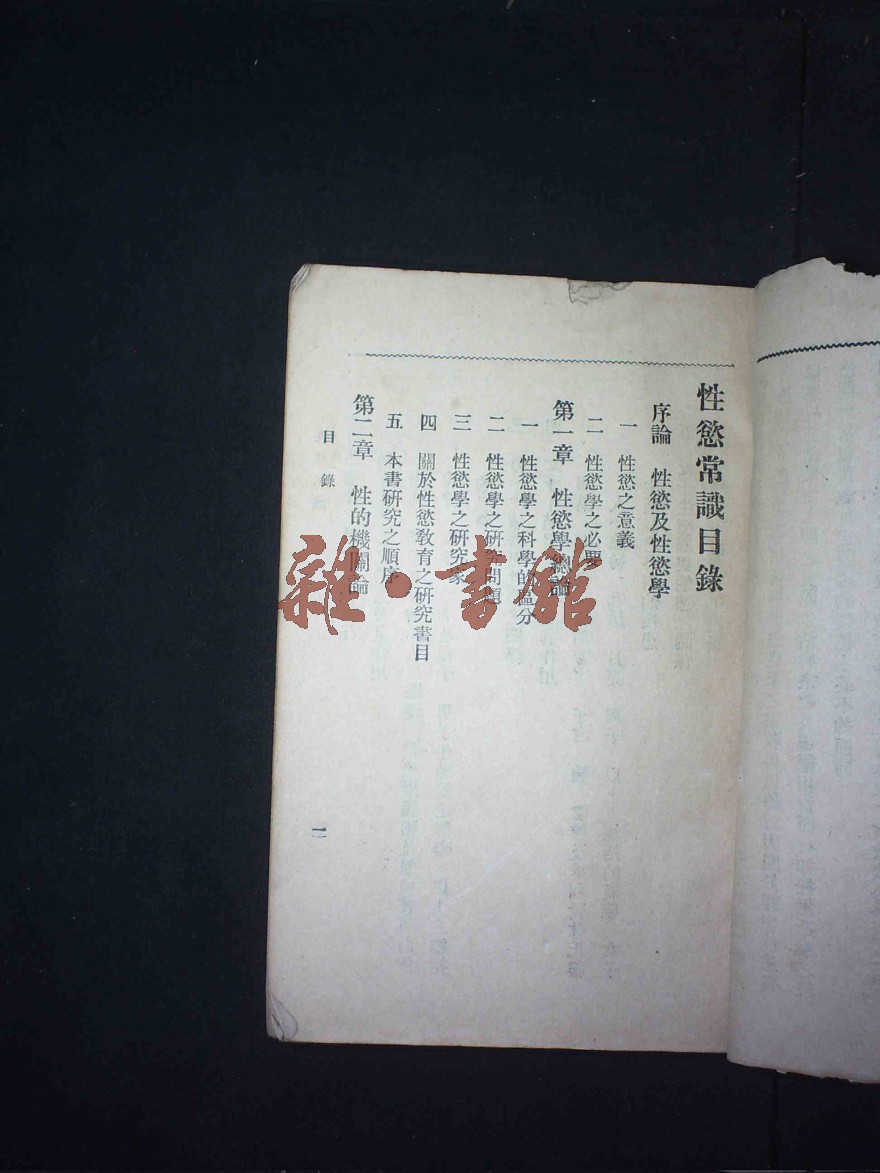 性慾常識目錄
序論　性慾及性慾學
一　性慾之意義
二　性慾學之必要
第一章　性慾學總論
一　性慾學之科學的區分
二　性慾學之研究問題
三　性慾學之研究家
四　關於性慾敎育之研究書目
五　本書研究之順序
第二章　性的機關論
目錄
一
雜·書館